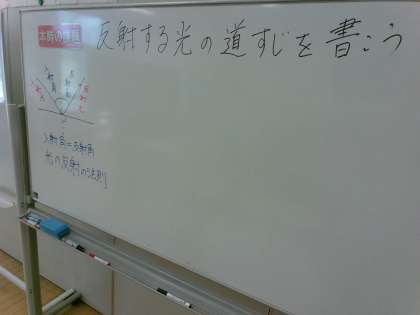 本時の課題
反射する光の道すじを書こう
入射角=反射角
光の反射の法則